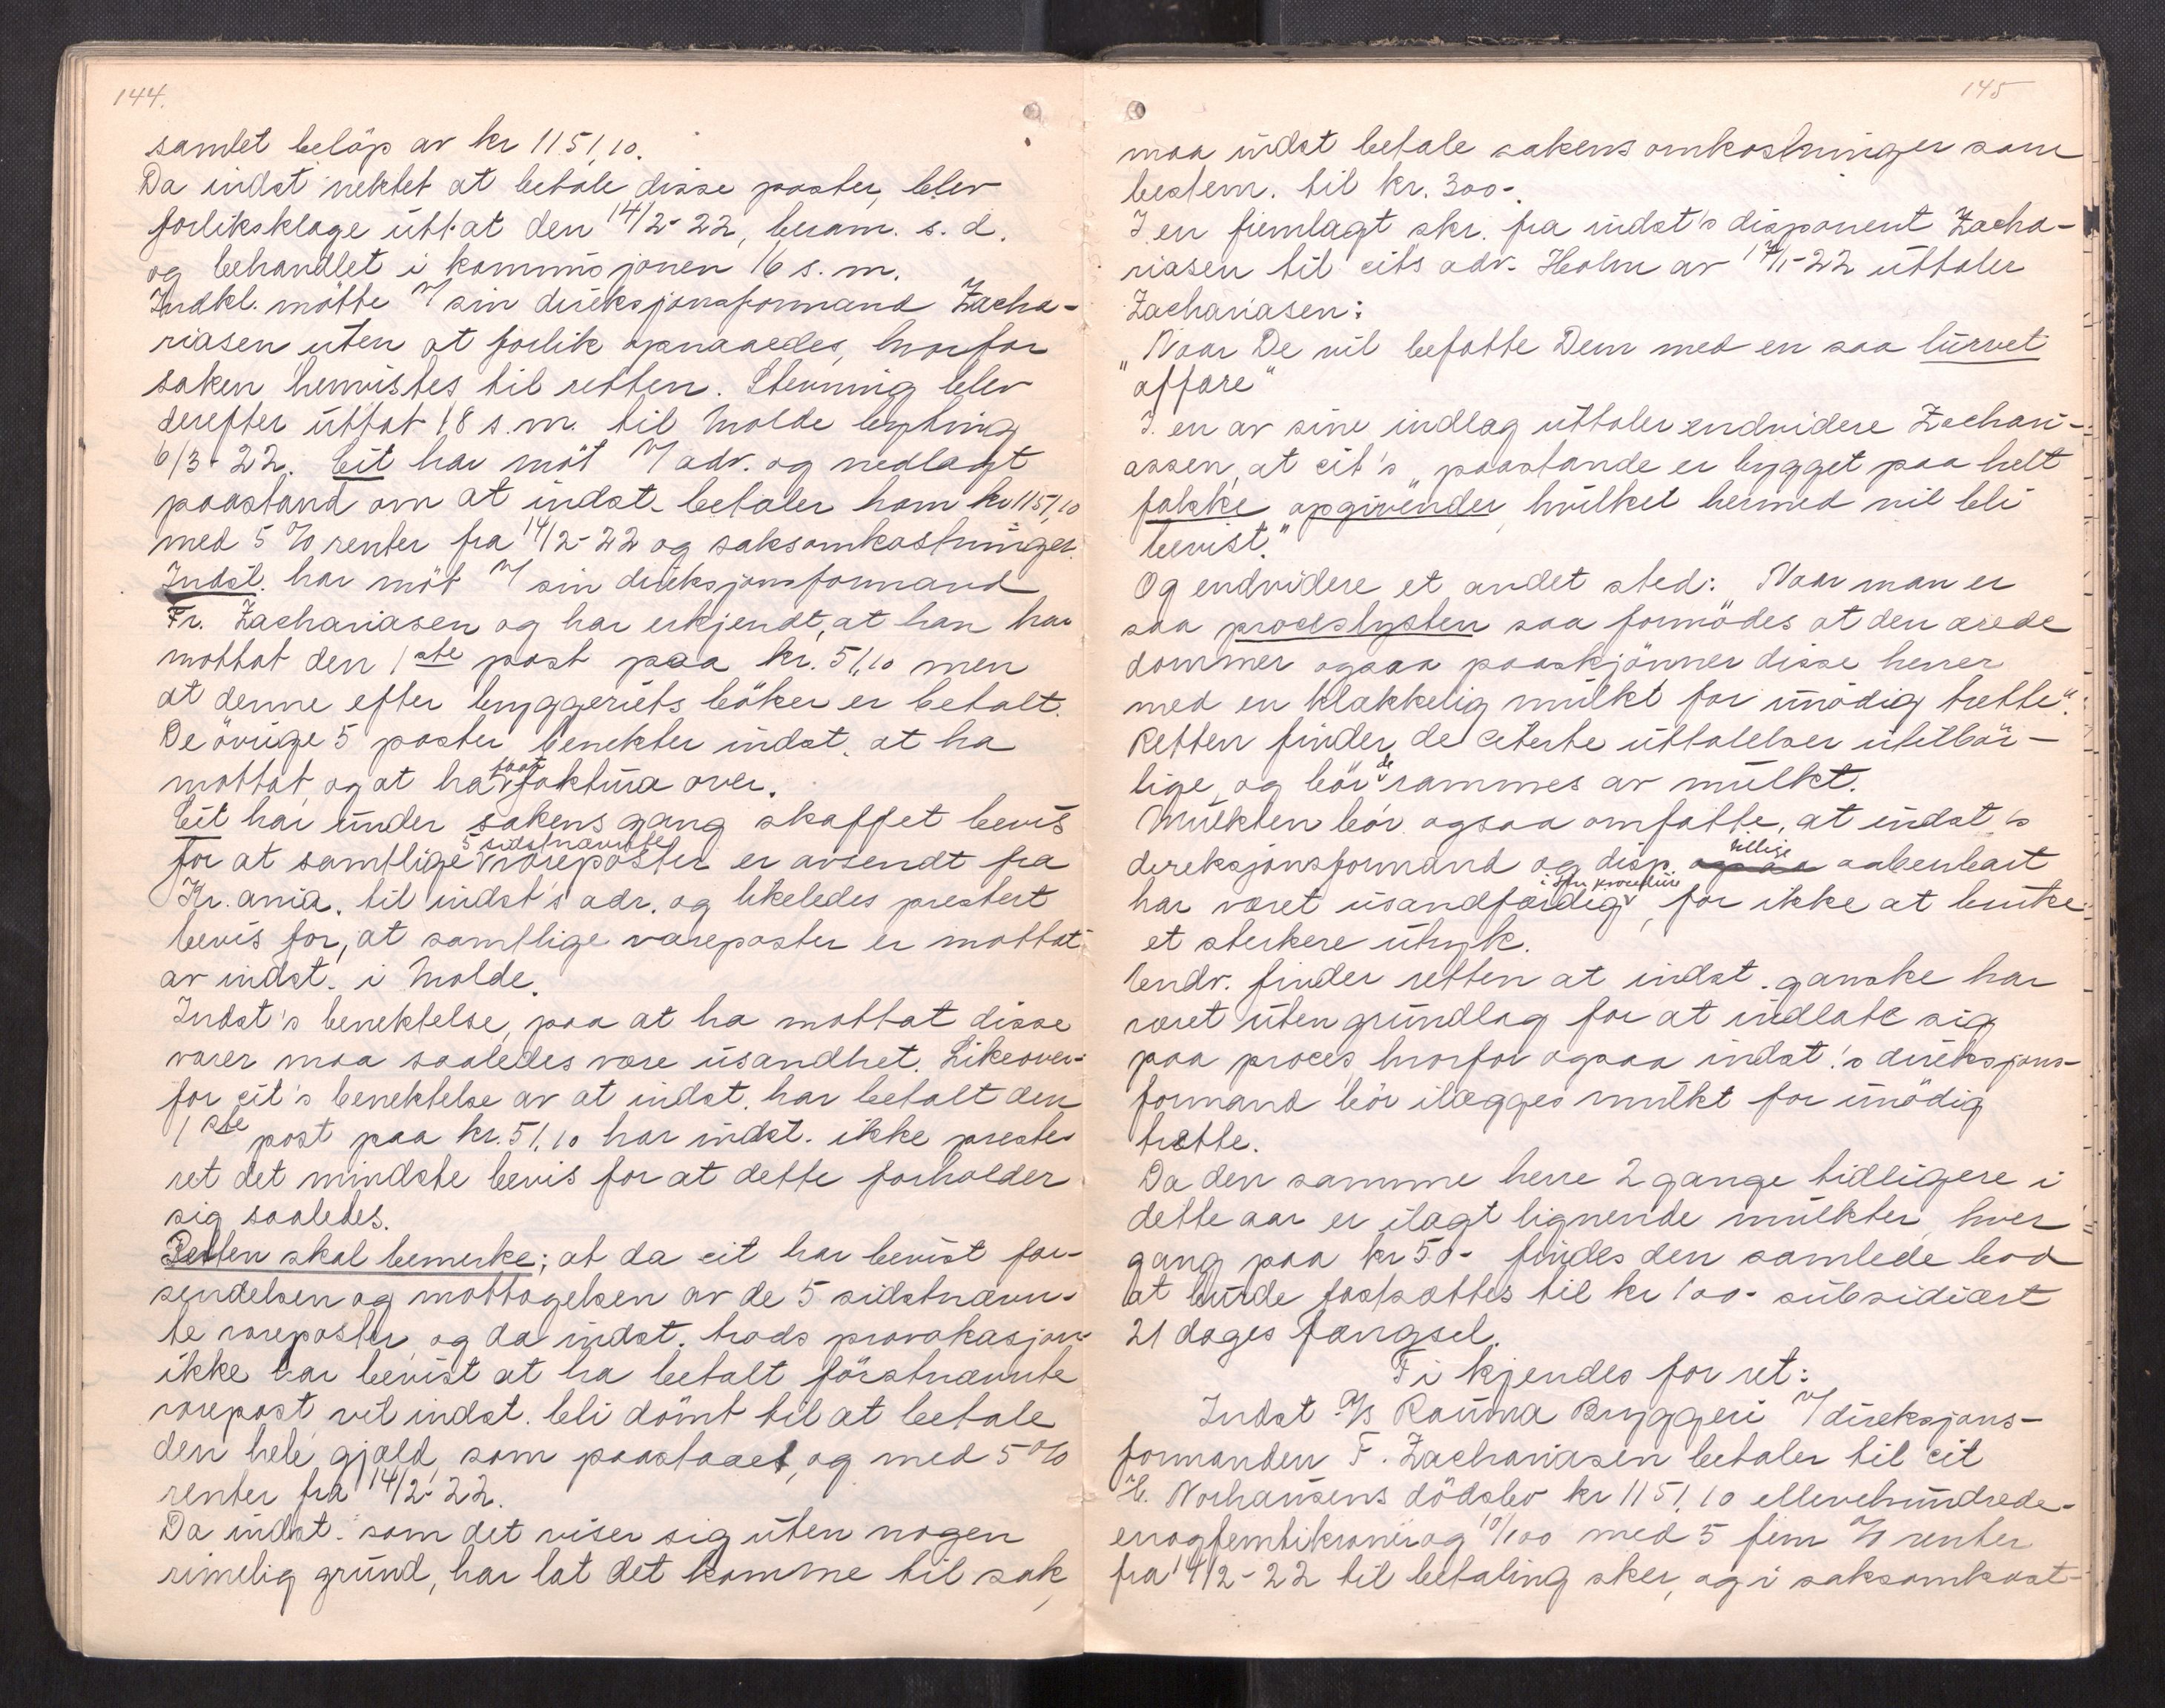 144.
samlet beløp av kr 1151,10.
Da indst nektet at betale disse poster, blev
forliksklage uttat den 14/2-22, beram. s. d.
og behandlet i kommisjonen 16 s. m.
Indkl. møtte v/ sin direksjonsformand Zacha-
riasen uten at forlik opnaaedes, hvorfor
saken henvistes til retten. Stevning blev
derefter uttat 18 s. m. til Molde byting
6/3-22. Cit har møt v/ adv. og nedlagt
paastand om at indst. betaler ham kr 1151,10
med 5 % renter fra 14/2-22 og saksomkostninger.
Indst. har møt v/ sin direksjonsformand
Fr. Zachariasen og har erkjendt, at han har
mottat den 1ste post paa kr. 51,10 men
at denne efter bryggeriets bøker er betalt.
De øvrige 5 poster benekter indst. at ha
mottat, og at ha faat faktura over.
Cit har under sakens gang skaffet bevis
for at samtlige 5 sidstnævnte vareposter er avsendt fra
Kr.ania. til indst's adr. og likeledes prestert
bevis for, at samtlige vareposter er mottat
av indst. i Molde.
Indst's benektelse, paa at ha mottat disse
varer maa saaledes være usandhet. Likeover-
for cit's benektelse av at indst. har betalt den
1ste post paa kr. 51,10 har indst. ikke preste-
ret det mindste bevis for at dette forholder
sig saaledes.
Retten skal bemerke; at da cit har bevist for-
sendelsen og mottagelsen av de 5 sidstnævn-
te vareposter og da indst. trods provokasjon
ikke har bevist at ha betalt førstnævnte
varepost vil indst. bli dømt til at betale
den hele gjæld, som paastaaet, og med 5 %
renter fra 14/2-22.
Da indst. som det viser sig uten nogen
rimelig grund, har lat det komme til sak,
145
maa indst betale sakens omkostninger som
bestem. til kr. 300-.
I en fremlagt skr. fra indst's disponent Zacha-
riasen til cits adv. Holm av -22 uttaler
Zachariasen:
"Naar De vil befatte Dem med en saa lurvet
"affære"
I en av sine indlæg uttaler endvidere Zachari-
assen, at cit's "paastande er bygget paa helt
falske opgivender hvilket hermed vil bli
bevist."
Og endvidere et andet sted: "Naar man er
saa proceslysten saa formødes at den ærede
dommer ogsaa paaskjønner disse herrer
med en klækkelig mulkt for unødig trette".
Retten finder de citerte uttalelser utilbør-
lige, og bør de rammes av mulkt.
Mulkten bør ogsaa omfatte, at indst's
direksjonsformand og disp. ogsaa tillige aabenbart
har været usandfærdig i sin procedure, for ikke at bruke
et sterkere utryk.
Endv. finder retten at indst. ganske har
været uten grundlag for at indlate sig
paa proces, hvorfor ogsaa indst.'s direksjons-
formand bør ilægges mulkt for unødig
trætte.
Da den samme herre 2 gange tidligere i
dette aar er ilagt lignende mulkter, hver
gang paa kr 50- findes den samlede bod
at burde fastsættes til kr 100- subsidiært
21 dages fængsel.
Ti kjendes for ret:
Indst A/S Rauma Bryggeri v/ direksjons-
formanden F. Zachariasen betaler til cit
Norhausens dødsbo kr 1151,10 ellevehundrede-
enogfemtikroner og 10/100 med 5 fem % renter
fra 14/2-22 til betaling sker, og i saksomkost-